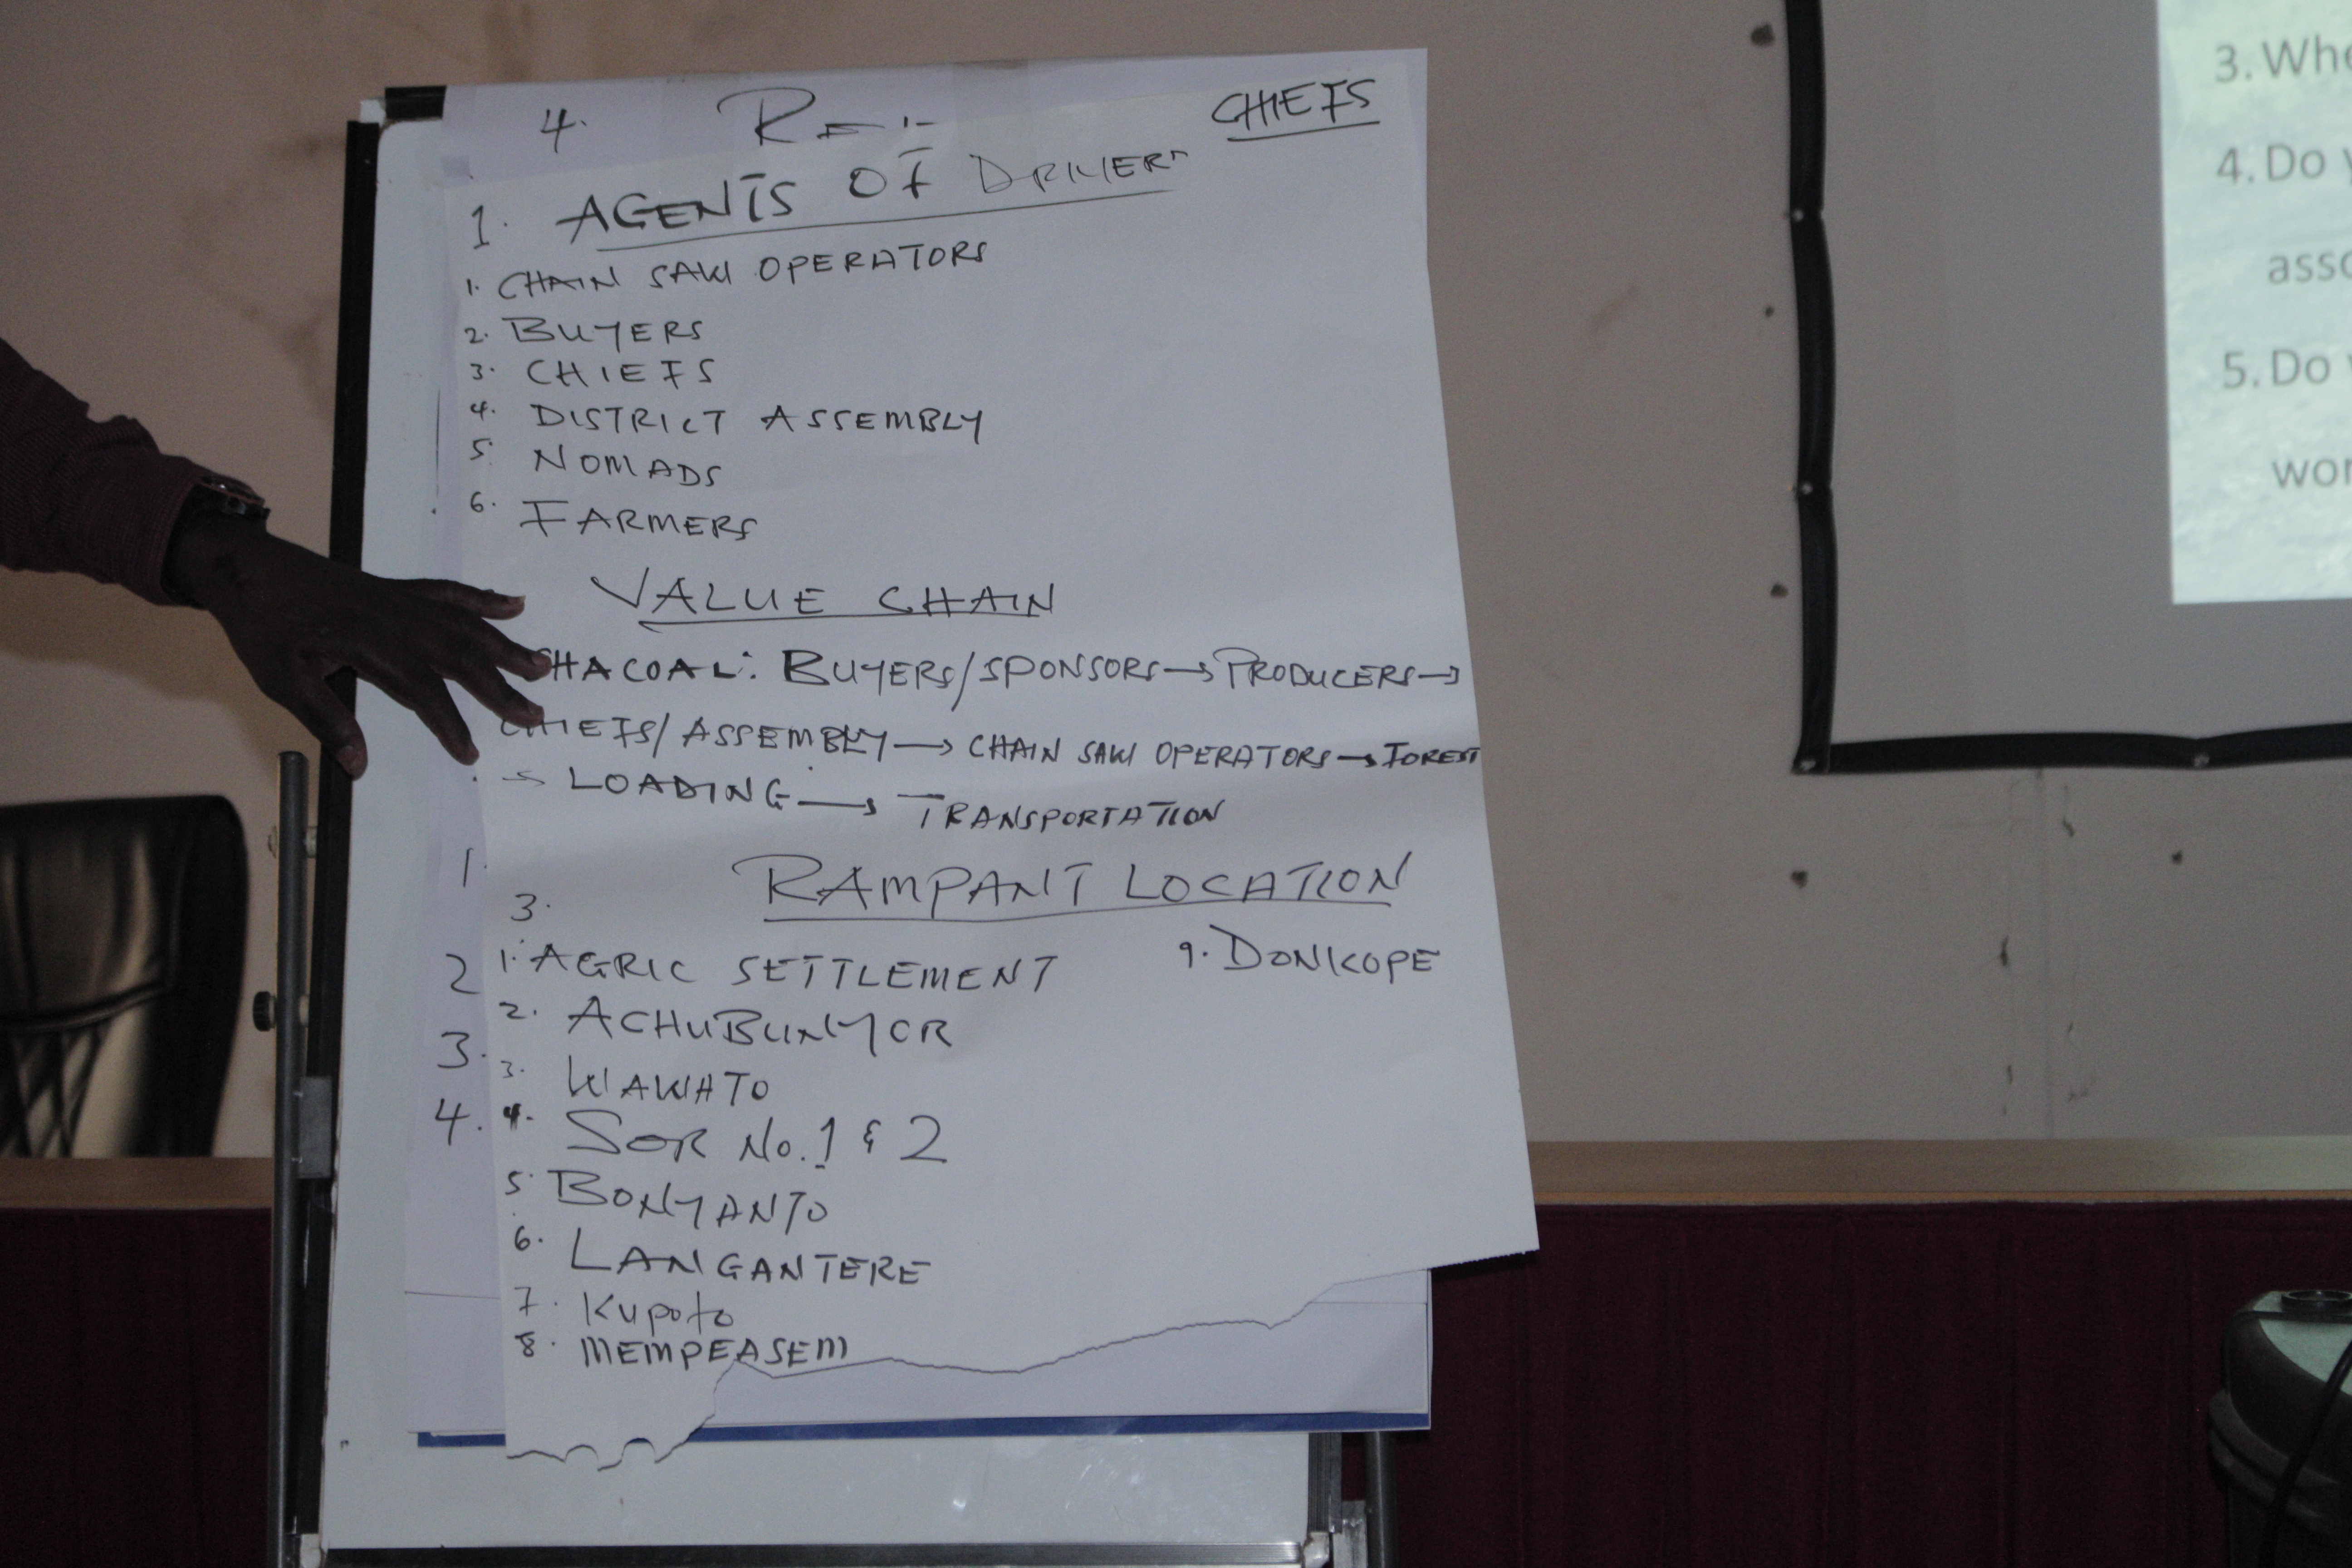 4.
CHIEFS
1. AGENTS OF DRIVERS
1. CHAIN SAW OPERATORS
2. BUYERS
3. CHIEFS
4. DISTRICT ASSEMBLY
5. NOMADS
6. FARMERS
VALUE CHAIN
CHACOAL: BUYERS/SPONSORS → PRODUCERS →
CHIEFS/ASSEMBLY → CHAIN SAW OPERATORS → FOREST
→ LOADING → TRANSPORTATION
1.
3. RAMPANT LOCATION
2 1. AGRIC SETTLEMENT 9. DONKOPE
2. ACHUBUNYOR
3. 3. WAWATO
4. 4. SOR No. 1 & 2
5. BONYANTO
6. LANGANTERE
7. Kupoto
8. MEMPEASEM
3. Whe
4. Do
asso
5. Do
wor